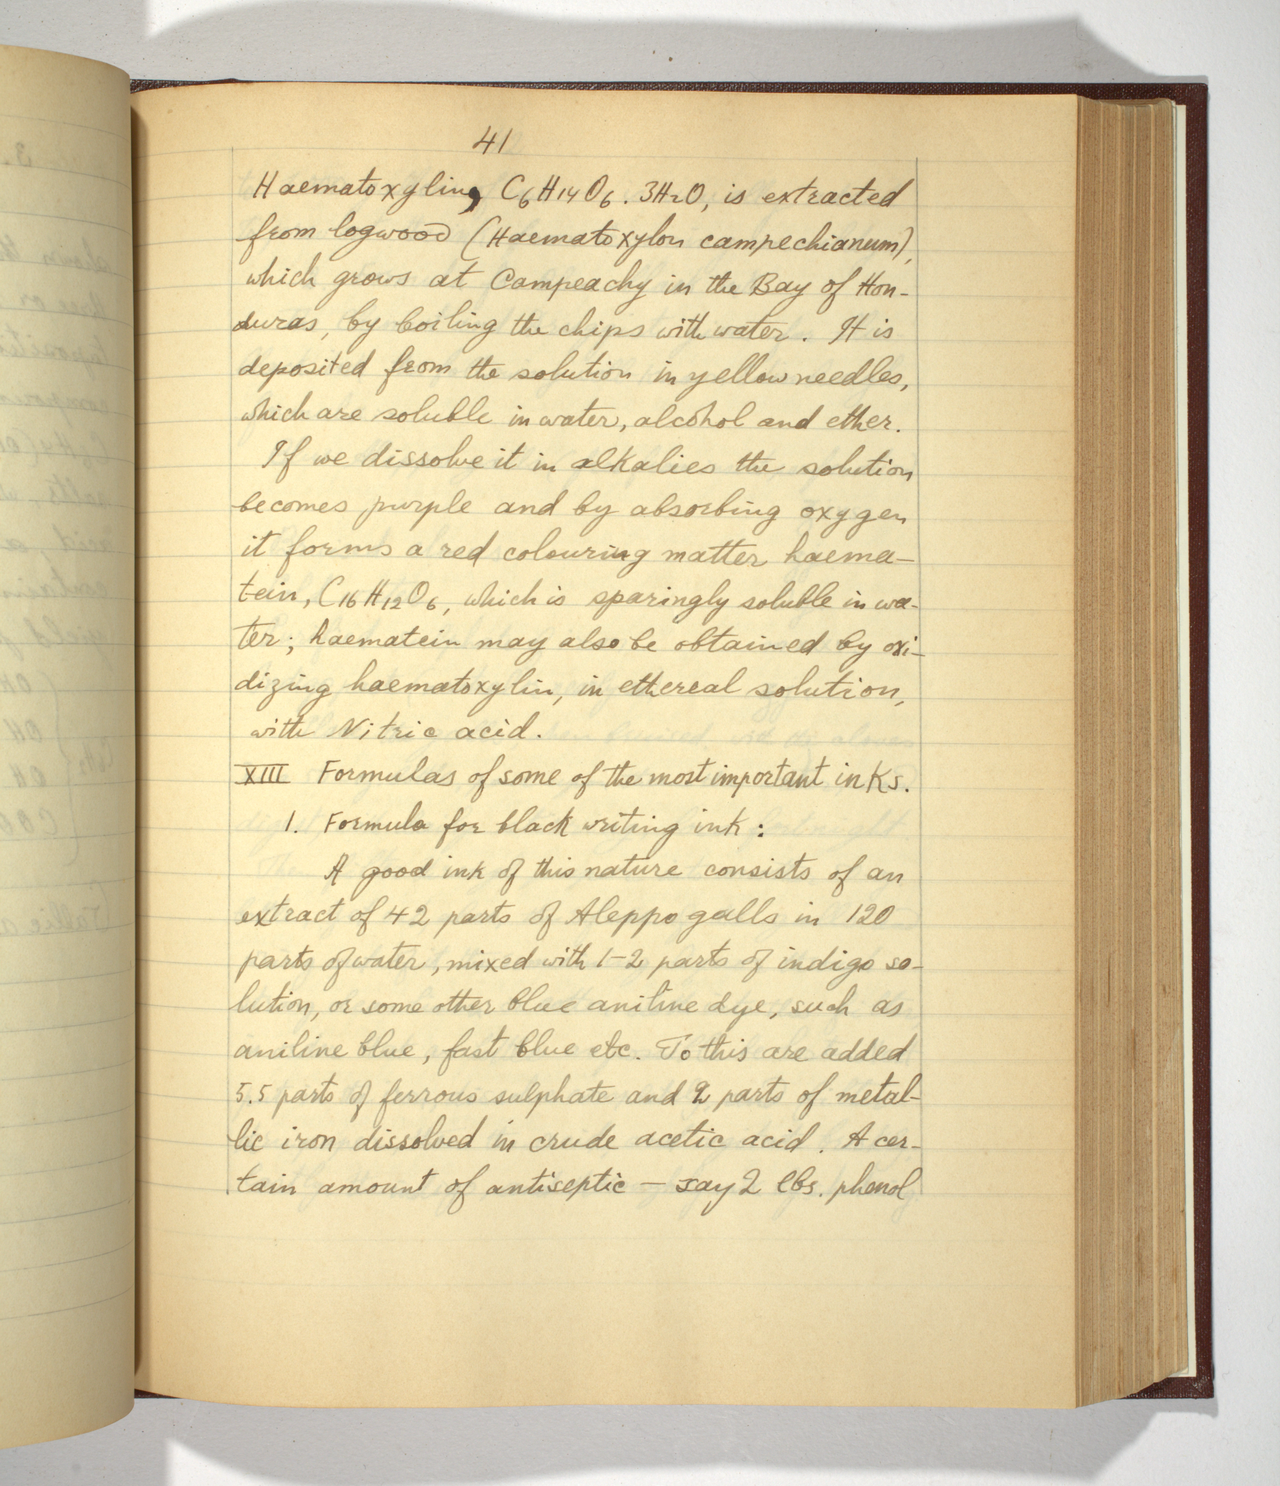 41
Haematoxylin, C6H14O6. 3H2O, is extracted
from logwood (Haematoxylon campechianum),
which grows at Campeachy in the Bay of Hon-
duras, by boiling the chips with water. It is
deposited from the solution in yellow needles,
which are soluble in water, alcohol and ether.
If we dissolve it in alkalies the solution
becomes purple and by absorbing oxygen
it forms a red colouring matter haema-
tein, C16H12O6, which is sparingly soluble in wa-
ter; haematein may also be obtained by oxi-
dizing haematoxylin, in ethereal solution,
with Nitric acid.
XIII Formulas of some of the most important inks.
1. Formula for black writing ink:
A good ink of this nature consists of an
extract of 42 parts of Aleppo galls in 120
parts of water, mixed with 1-2 parts of indigo so-
lution, or some other blue aniline dye, such as
aniline blue, fast blue etc. To this are added
5.5 parts of ferrous sulphate and 2 parts of metal-
lic iron dissolved in crude acetic acid. A cer-
tain amount of antiseptic — say 2 lbs. phenol